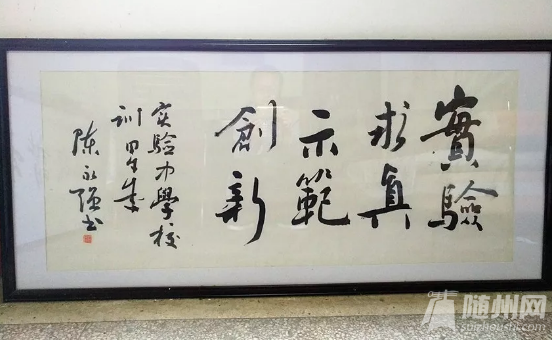 實驗
求真
示範
創新
实驗小學校
訓 甲午春
陈永强书
随州网
suizhoushi.com